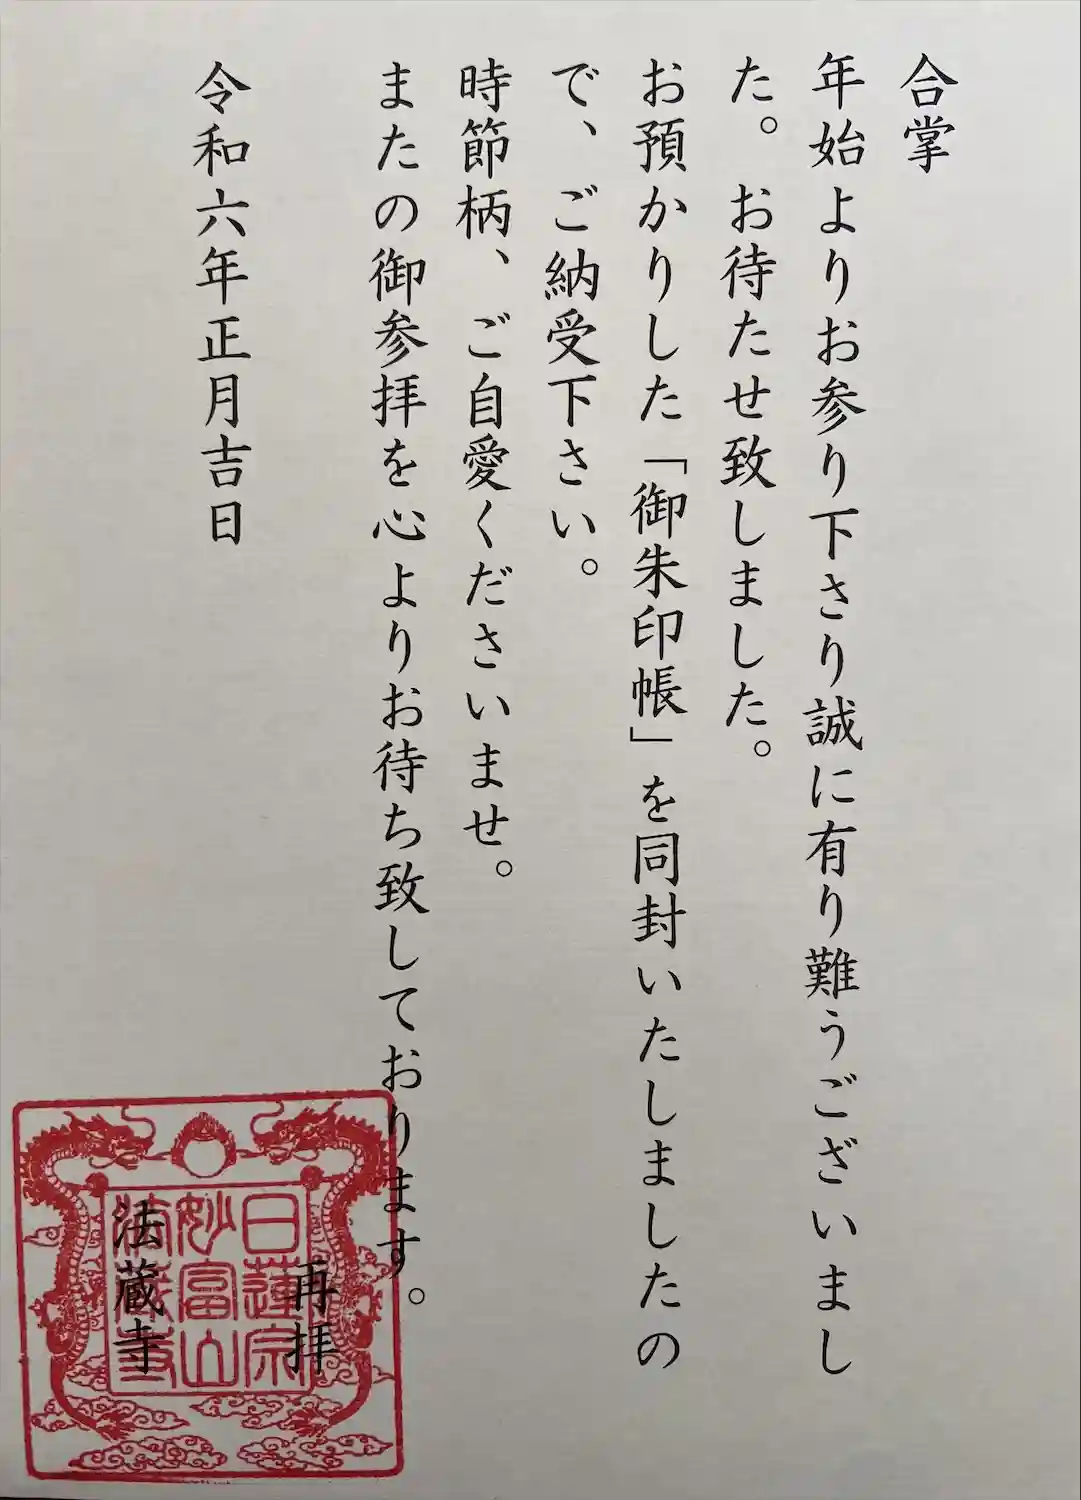 合掌
年始よりお参り下さり誠に有り難うございまし
た。お待たせ致しました。
お預かりした「御朱印帳」を同封いたしましたの
で、ご納受下さい。
時節柄、ご自愛くださいませ。
またの御参拝を心よりお待ち致しております。
再拝
令和六年正月吉日
法蔵寺
日蓮宗
妙富山
法蔵寺